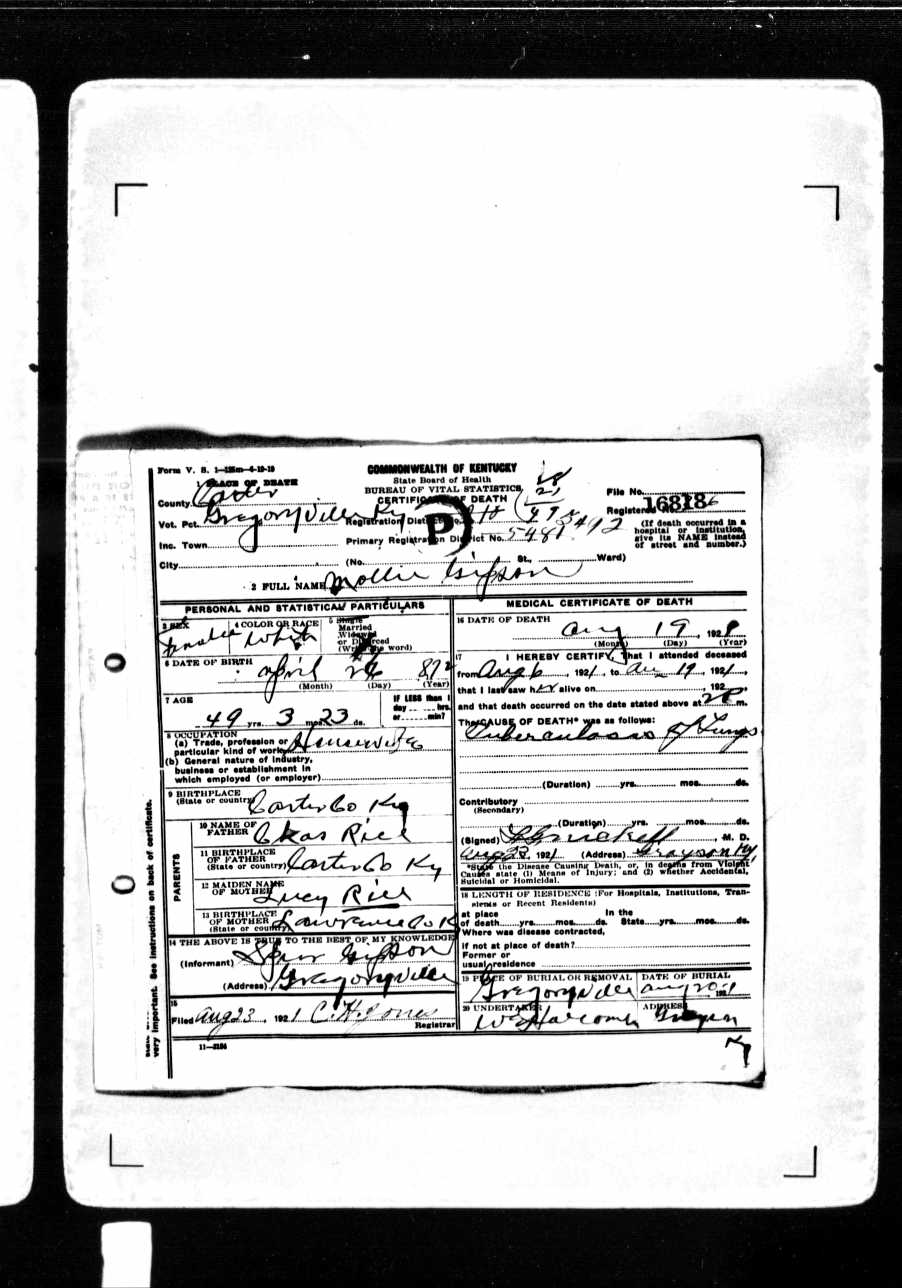 Form V. S. 1—125m—4-19-19
COMMONWEALTH OF KENTUCKY
State Board of Health
BUREAU OF VITAL STATISTICS
CERTIFICATE OF DEATH
PLACE OF DEATH
County Carter
Vot. Pct. Gregoryville Ky
Inc. Town
City
File No. 16818
Registered No.
(If death occurred in a hospital or institution, give its NAME instead of street and number.)
Registration District No.
Primary Registration District No. 5481
P
(No. St., Ward)
2 FULL NAME Mollie Gipson
PERSONAL AND STATISTICAL PARTICULARS
3 SEX Female
4 COLOR OR RACE White
5 Single
Married
Widowed
or Divorced
(Write the word)
6 DATE OF BIRTH
April 26 872
(Month) (Day) (Year)
7 AGE
49 yrs. 3 mos. 23 ds.
IF LESS than 1
day hrs.
or min?
8 OCCUPATION
(a) Trade, profession or
particular kind of work Housewife
(b) General nature of industry,
business or establishment in
which employed (or employer)
9 BIRTHPLACE
(State or country) Carter Co Ky
PARENTS
10 NAME OF
FATHER Chas Rice
11 BIRTHPLACE
OF FATHER
(State or country) Carter Co Ky
12 MAIDEN NAME
OF MOTHER Lucy Rice
13 BIRTHPLACE
OF MOTHER
(State or country) Lawrence Co K
14 THE ABOVE IS TRUE TO THE BEST OF MY KNOWLEDGE
(Informant) Gipson
(Address) Gregoryville
15
Filed Aug 23, 1921 C. H. Jones
Registrar
11—3184
MEDICAL CERTIFICATE OF DEATH
16 DATE OF DEATH
Aug 19, 1921
(Month) (Day) (Year)
17 I HEREBY CERTIFY, That I attended deceased
from Aug 6, 1921, to Aug 19, 1921,
that I last saw her alive on , 192 ,
and that death occurred on the date stated above at m.
The CAUSE OF DEATH* was as follows:
Tuberculosis of Lungs
(Duration) yrs. mos. ds.
Contributory
(Secondary)
(Duration) yrs. mos. ds.
(Signed) M. D.
Aug 23, 1921 (Address) Grayson Ky
*State the Disease Causing Death, or, in deaths from Violent
Causes state (1) Means of Injury; and (2) whether Accidental,
Suicidal or Homicidal.
18 LENGTH OF RESIDENCE (For Hospitals, Institutions, Tran-
sients or Recent Residents)
at place In the
of death yrs. mos. ds. State yrs. mos. ds.
Where was disease contracted,
if not at place of death?
Former or
usual residence
19 PLACE OF BURIAL OR REMOVAL DATE OF BURIAL
Gregoryville Aug 20 1921
20 UNDERTAKER ADDRESS
Grayson
Ky
very important. See instructions on back of certificate.